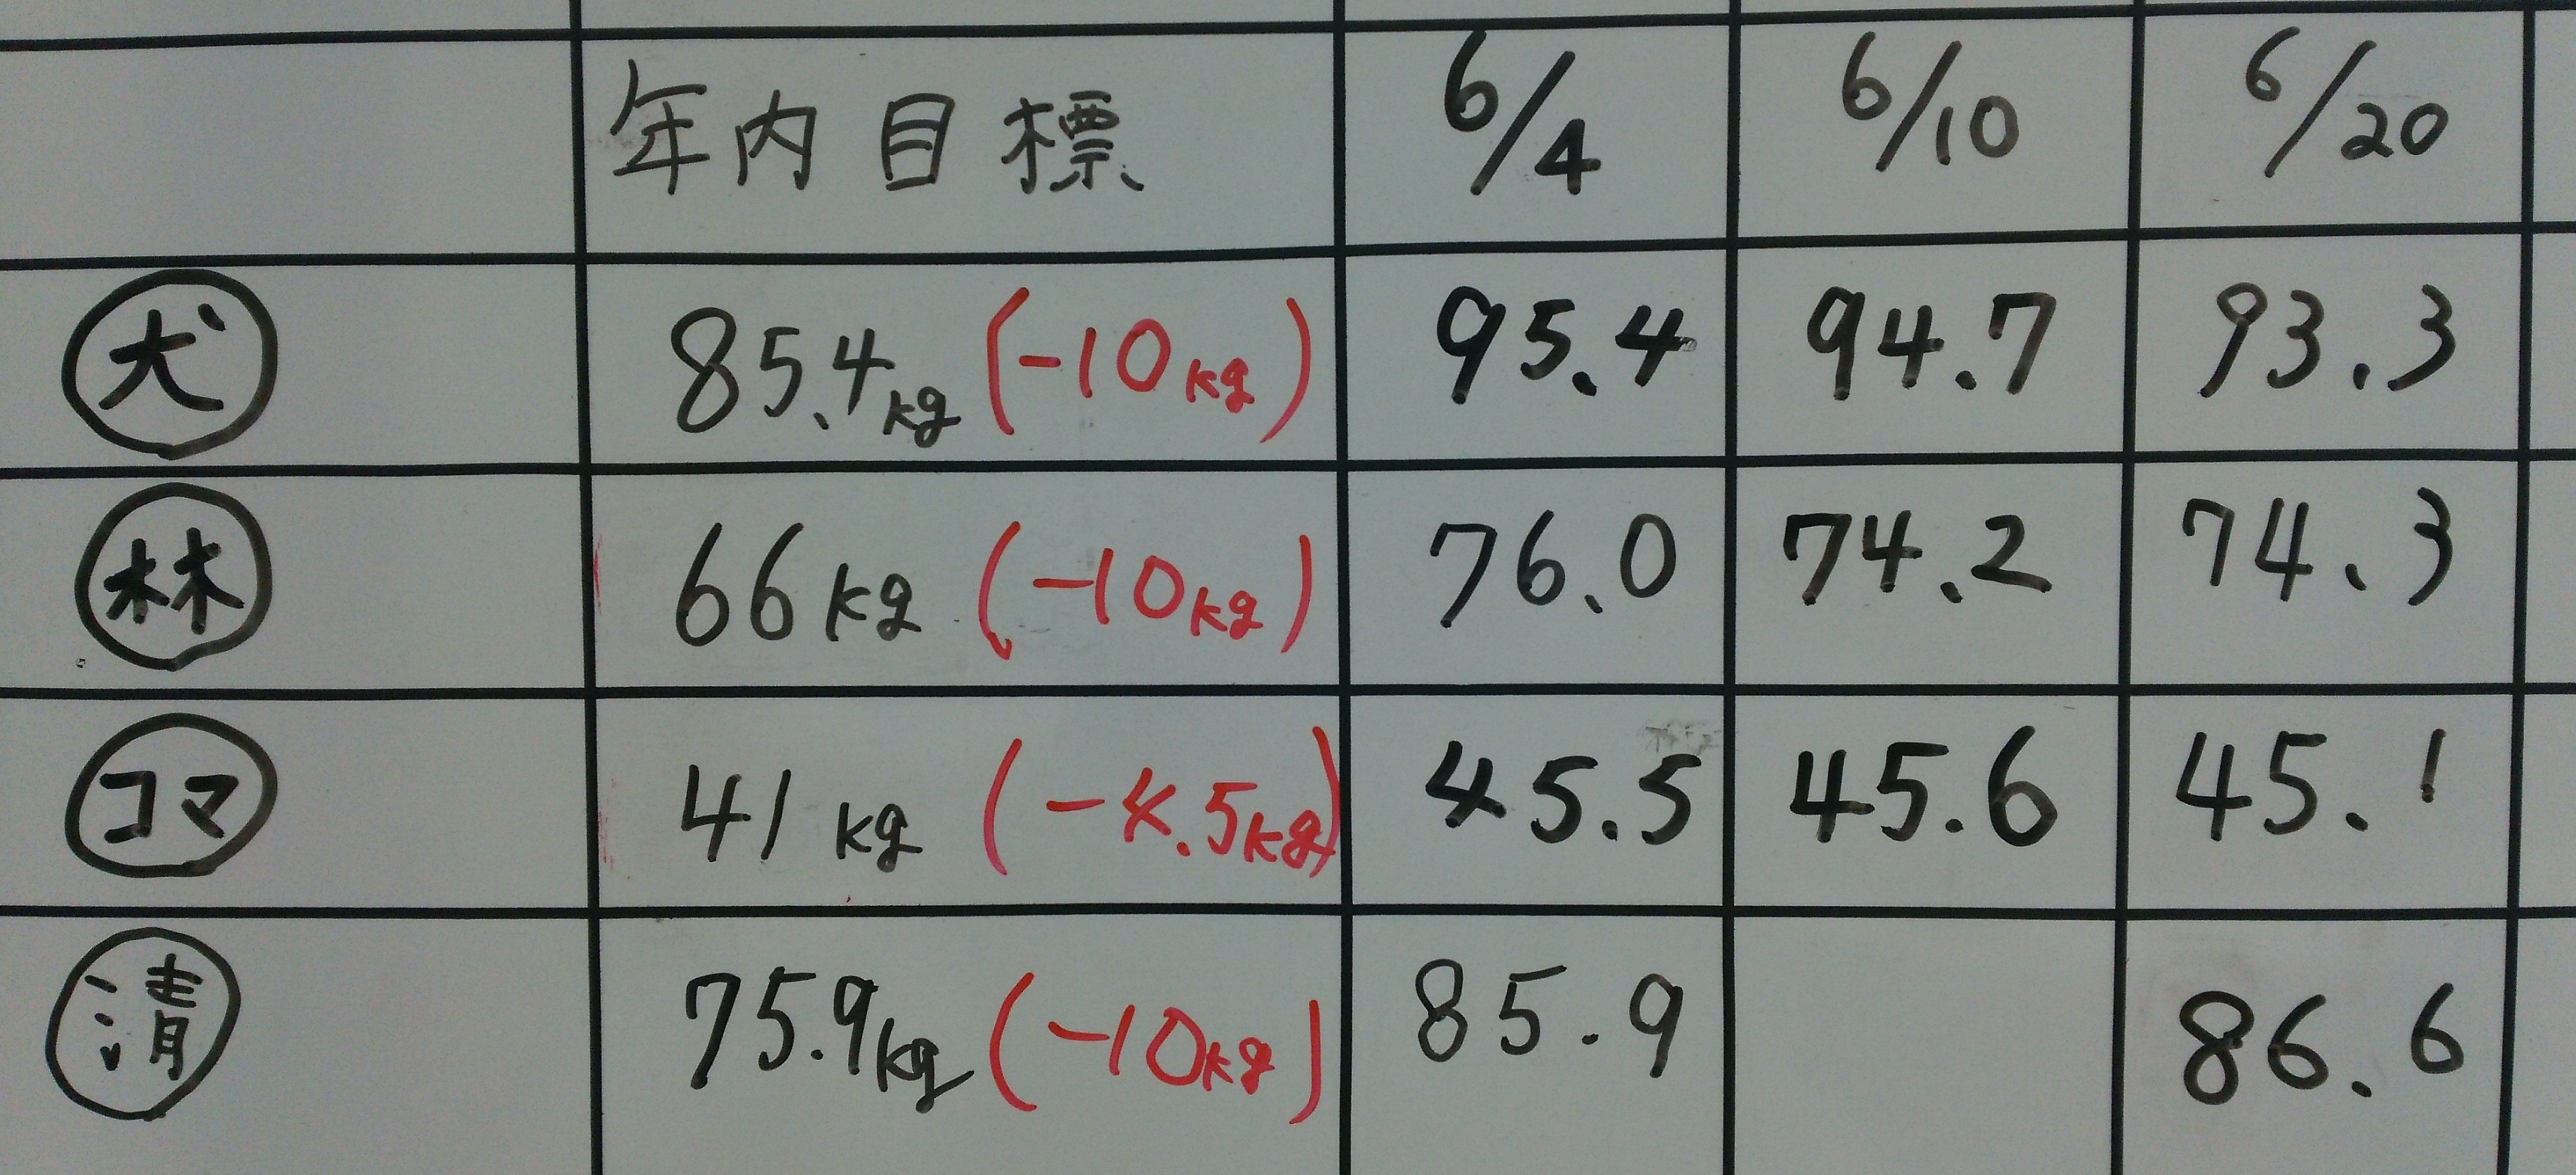 年内目標 6/4 6/10 6/20
犬 85.4kg (-10kg) 95.4 94.7 93.3
林 66kg (-10kg) 76.0 74.2 74.3
コマ 41kg (-4.5kg) 45.5 45.6 45.1
清 75.9kg (-10kg) 85.9 86.6